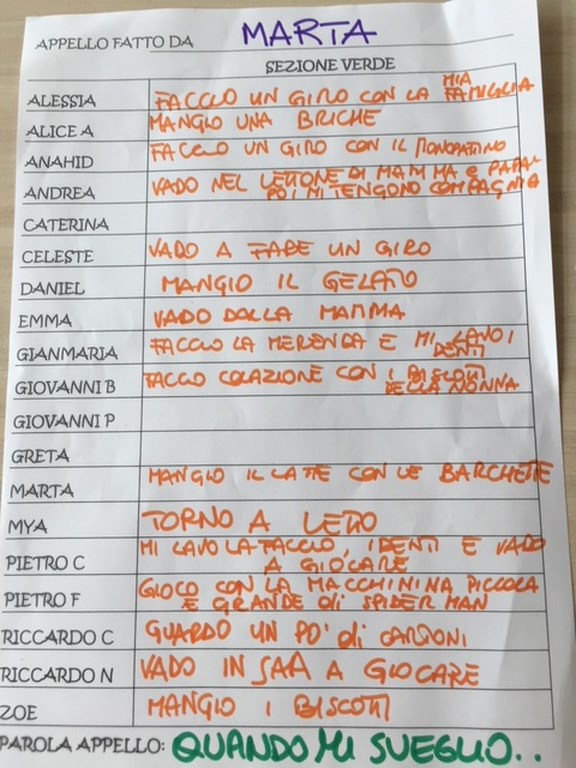 APPELLO FATTO DA MARTA
SEZIONE VERDE
ALESSIA FACCIO UN GIRO CON LA MIA FAMIGLIA
ALICE A MANGIO UNA BRICHE
ANAHID FACCIO UN GIRO CON IL MONOPATTINO
ANDREA VADO NEL LETTONE DI MAMMA E PAPA'
POI MI TENGONO COMPAGNIA
CATERINA
CELESTE VADO A FARE UN GIRO
DANIEL MANGIO IL GELATO
EMMA VADO DALLA MAMMA
GIANMARIA FACCIO LA MERENDA E MI LAVO I
DENTI
GIOVANNI B FACCIO COLAZIONE CON I BISCOTTI
DELLA NONNA
GIOVANNI P
GRETA
MARTA MANGIO IL LATTE CON LE BARCHETTE
MYA TORNO A LETTO
PIETRO C MI LAVO LA FACCIO, I DENTI E VADO
A GIOCARE
PIETRO F GIOCO CON LA MACCHININA PICCOLA
E GRANDE di SPIDER MAN
RICCARDO C GUARDO UN PO' di CARTONI
RICCARDO N VADO IN SALA A GIOCARE
ZOE MANGIO I BISCOTTI
PAROLA APPELLO: QUANDO MI SVEGLIO..